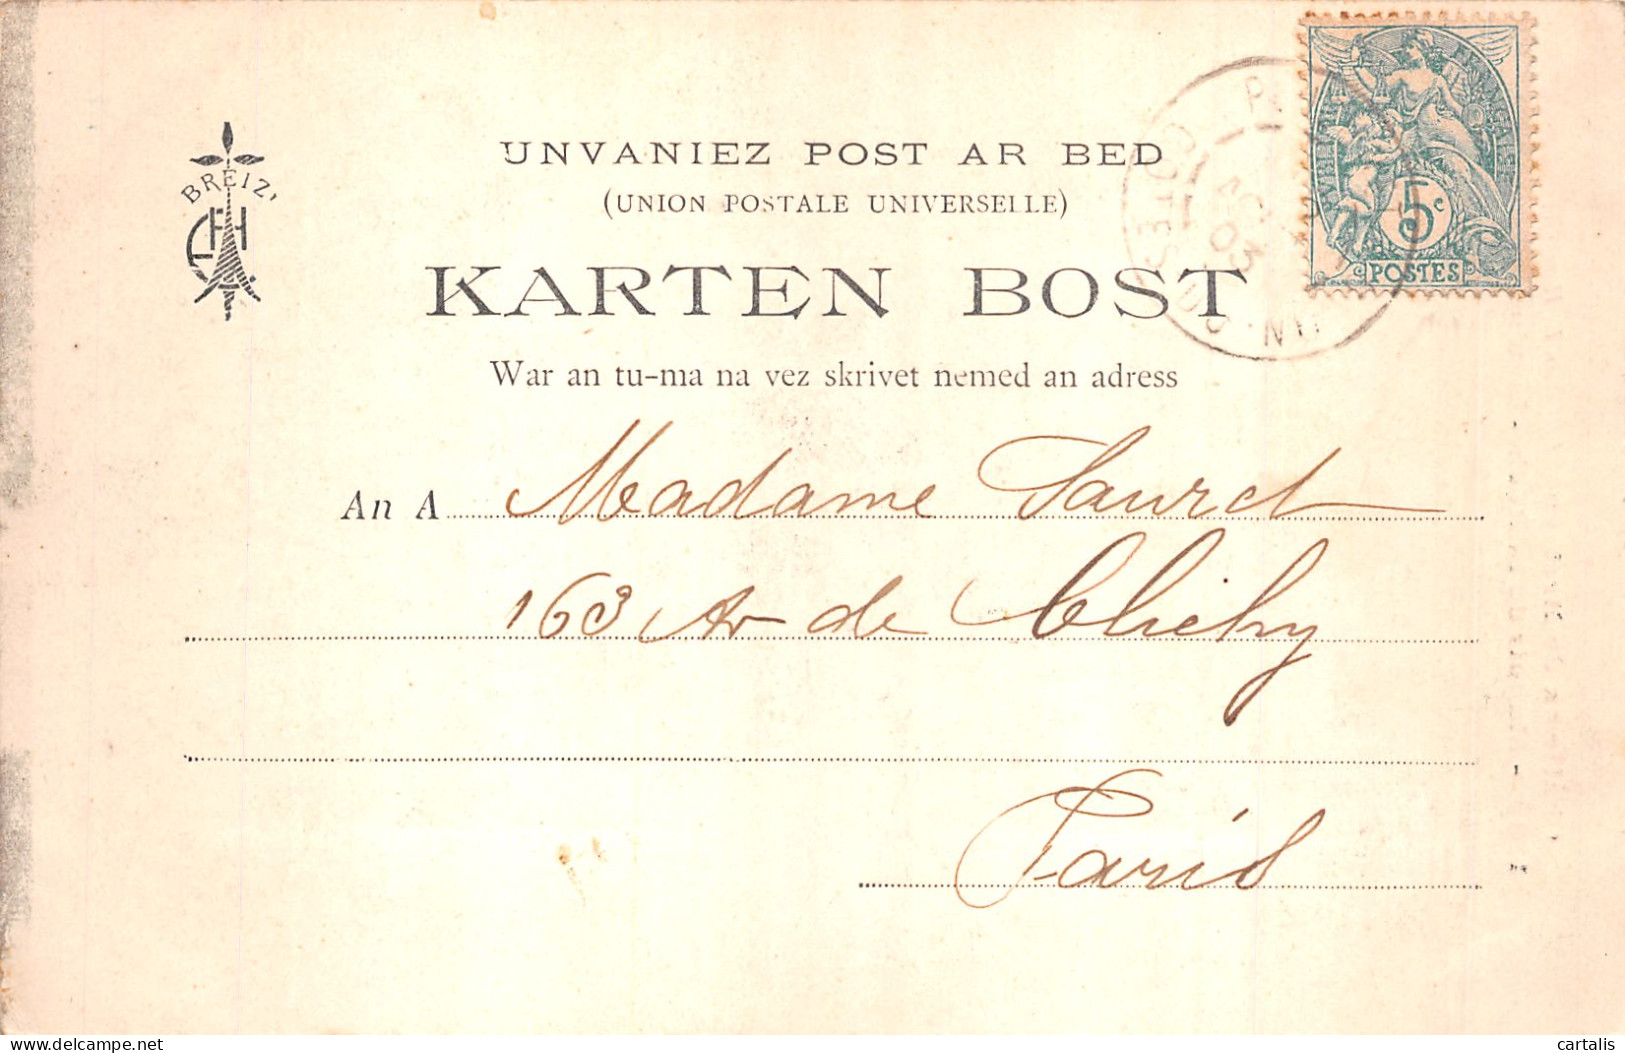 UNVANIEZ POST AR BED
(UNION POSTALE UNIVERSELLE)
BREIZ'
KARTEN BOST
War an tu-ma na vez skrivet nemed an adress
An A Madame Sauret
163 Av de Clichy
Paris
5c
POSTES
03
COTES DU N
cartalis